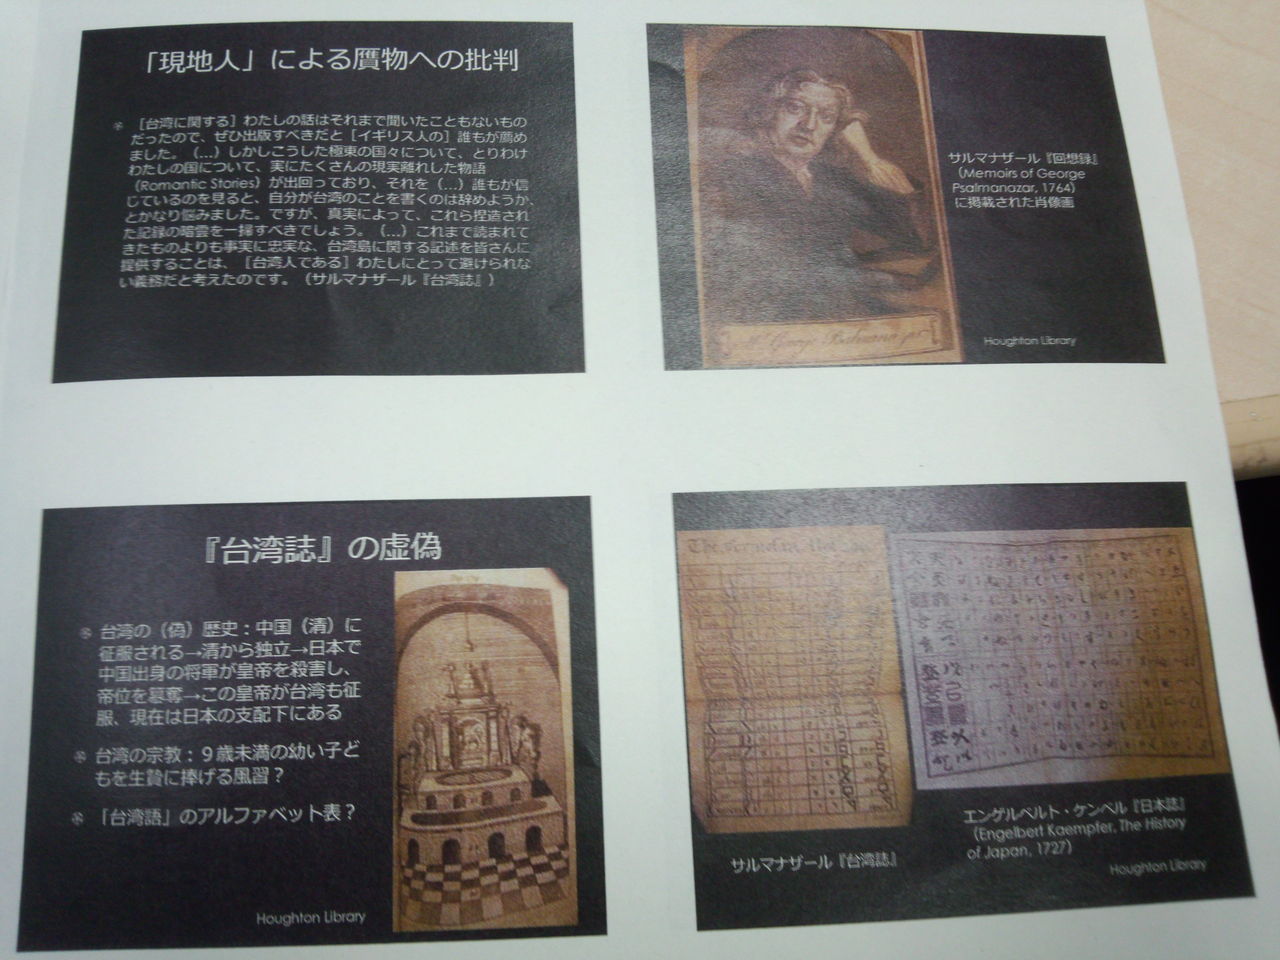 「現地人」による贋物への批判
［台湾に関する］わたしの話はそれまで聞いたこともないもの
だったので、ぜひ出版すべきだと［イギリス人の］誰もが薦め
ました。（...）しかしこうした極東の国々について、とりわけ
わたしの国について、実にたくさんの現実離れした物語
（Romantic Stories）が出回っており、それを（...）誰もが信
じているのを見ると、自分が台湾のことを書くのは辞めようか、
とかなり悩みました。ですが、真実によって、これら捏造され
た記録の暗雲を一掃すべきでしょう。（...）これまで読まれて
きたものよりも事実に忠実な、台湾島に関する記述を皆さんに
提供することは、［台湾人である］わたしにとって避けられな
い義務だと考えたのです。（サルマナザール『台湾誌』）
サルマナザール『回想録』
（Memoirs of George
Psalmanazar, 1764）
に掲載された肖像画
Houghton Library
『台湾誌』の虚偽
台湾の（偽）歴史：中国（清）に
征服される→清から独立→日本で
中国出身の将軍が皇帝を殺害し、
帝位を簒奪→この皇帝が台湾も征
服、現在は日本の支配下にある
台湾の宗教：９歳未満の幼い子ど
もを生贄に捧げる風習？
「台湾語」のアルファベット表？
Houghton Library
サルマナザール『台湾誌』
エンゲルベルト・ケンペル『日本誌』
（Engelbert Kaempfer, The History
of Japan, 1727）
Houghton Library